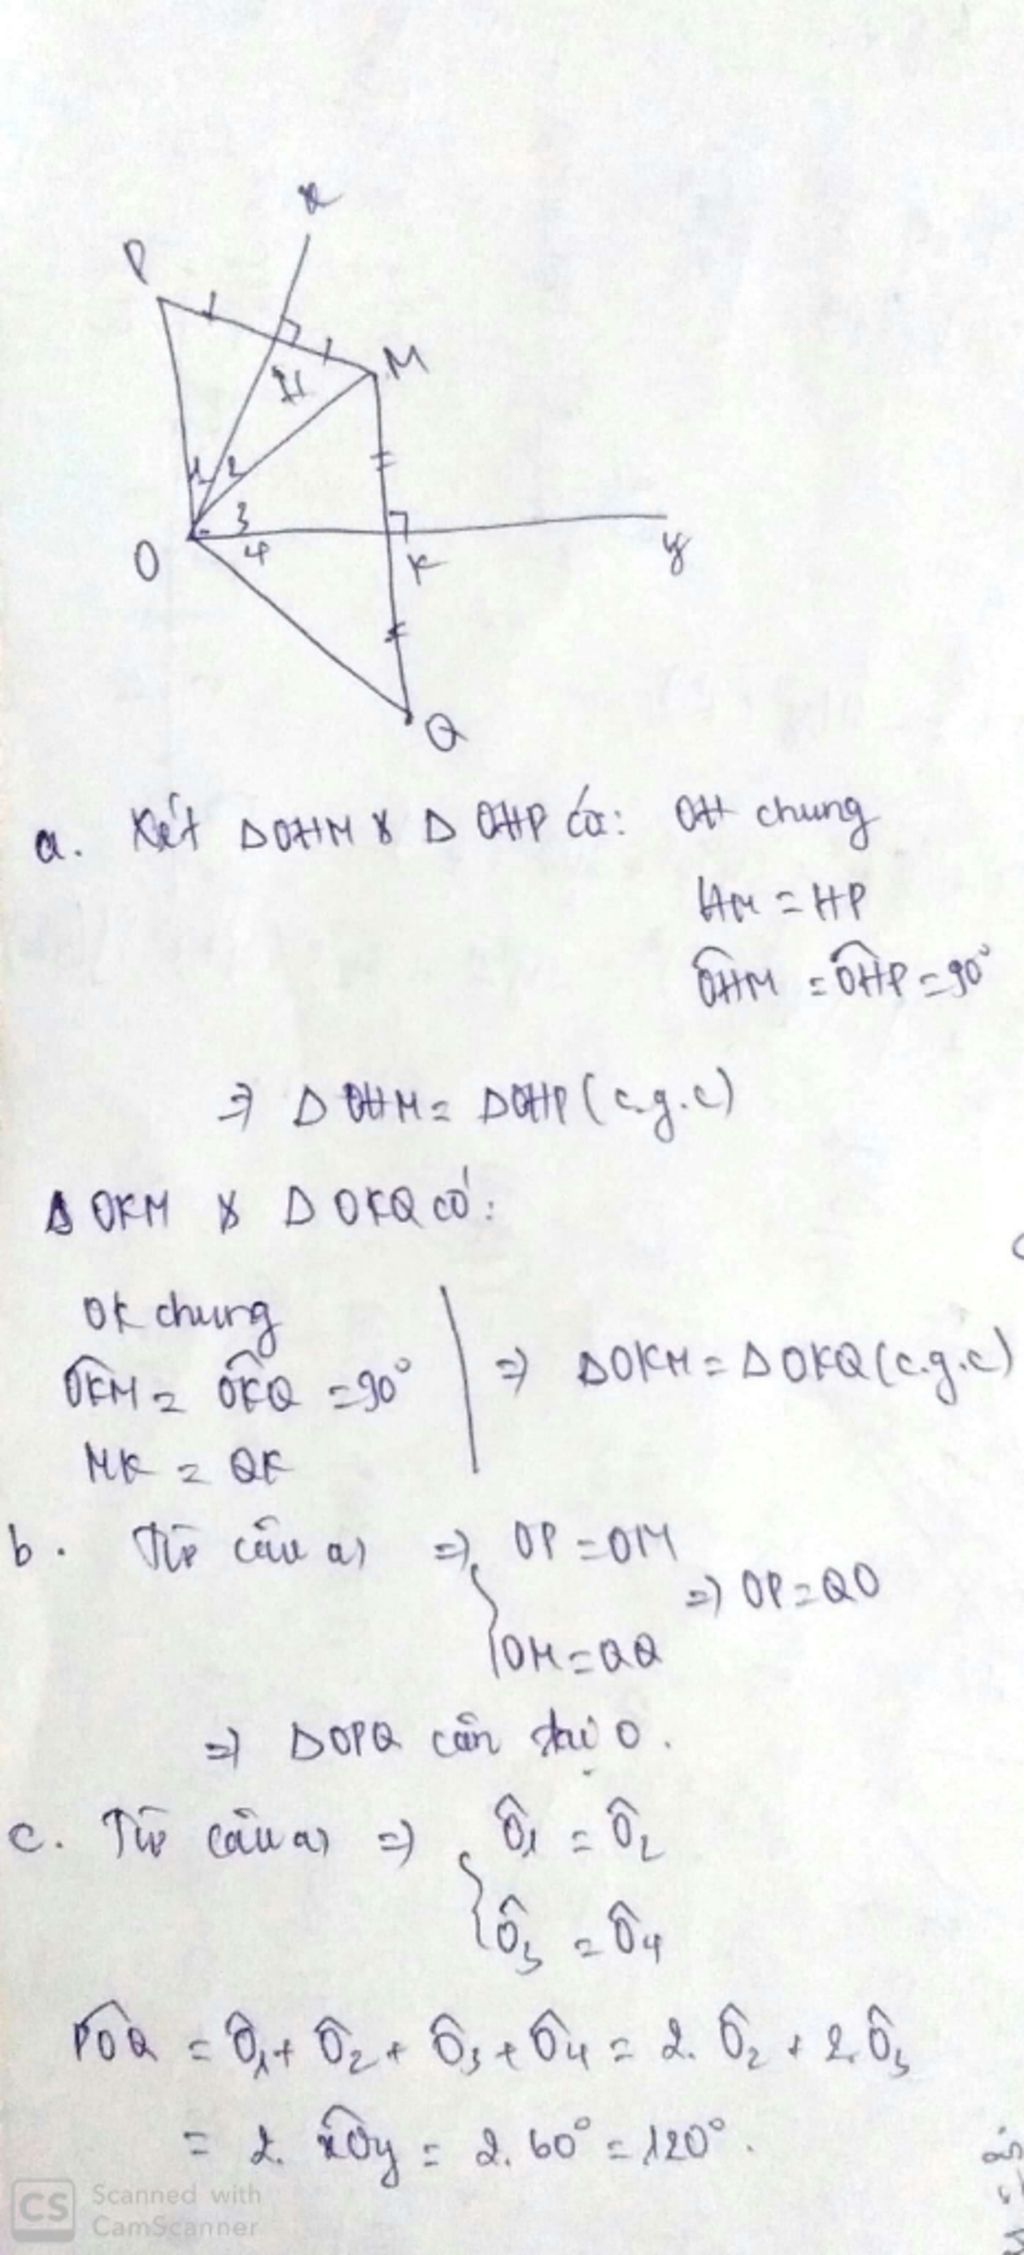 x
P
M
H
1 2
3
O
4
K
y
Q
a. Xét ΔOHM & ΔOHP có: OH chung
HM = HP
OHM = OHP = 90°
⇒ ΔOHM = ΔOHP (c.g.c)
ΔOKM & ΔOKQ có:
OK chung
OKM = OKQ = 90° ⇒ ΔOKM = ΔOKQ (c.g.c)
MK = QK
b. Từ câu a) ⇒ OP = OM
⇒ OP = QO
OM = OQ
⇒ ΔOPQ cân tại O.
c. Từ câu a) ⇒ Ô1 = Ô2
Ô3 = Ô4
POQ = Ô1 + Ô2 + Ô3 + Ô4 = 2. Ô2 + 2. Ô3
= 2. xOy = 2. 60° = 120°.
CS Scanned with
CamScanner